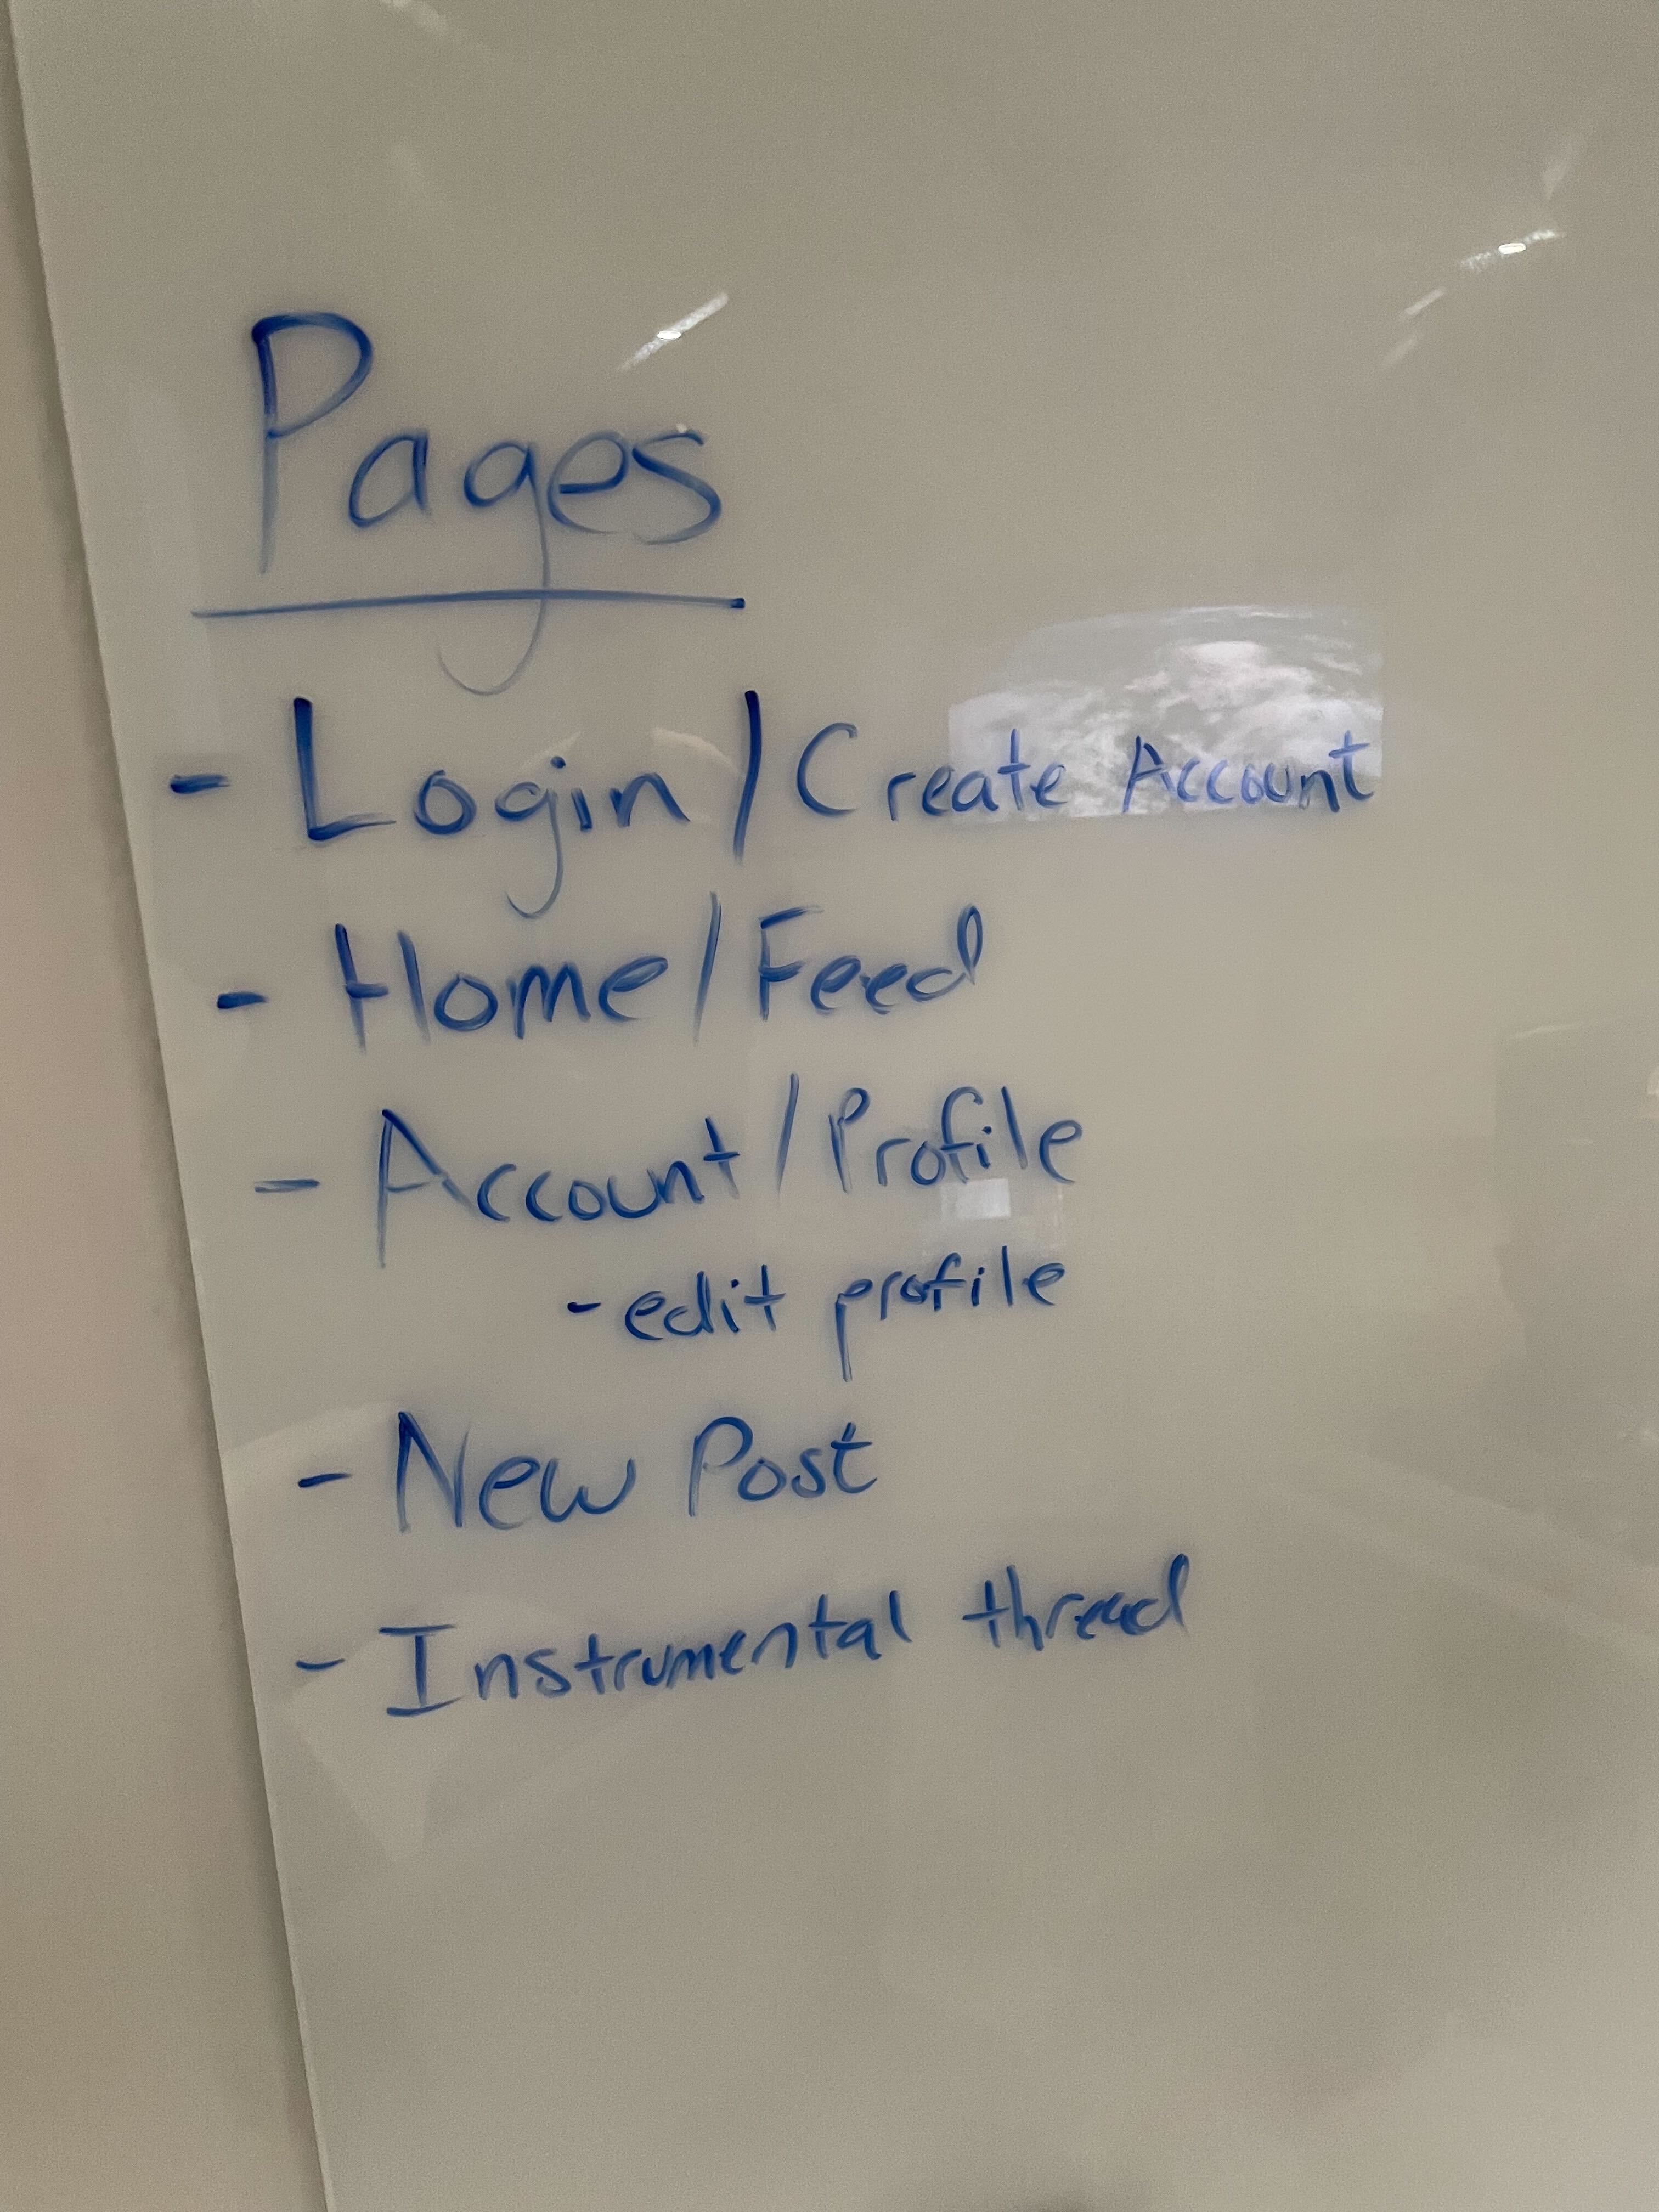 Pages
- Login/Create Account
- Home/Feed
- Account/Profile
- edit profile
- New Post
- Instrumental thread